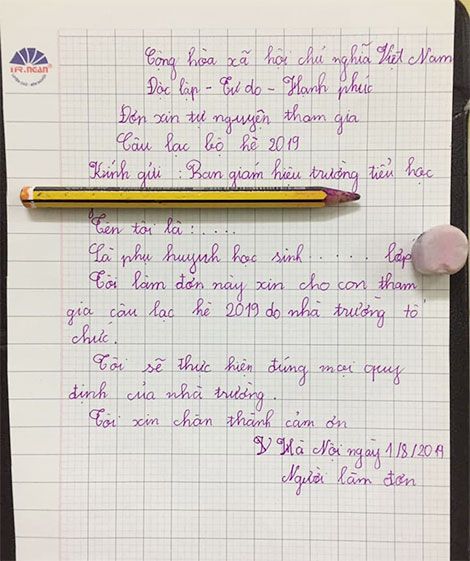 TR.NGAN
Cộng hòa xã hội chủ nghĩa Việt Nam
Độc lập - Tự do - Hạnh phúc
Đơn xin tự nguyện tham gia
Câu lạc bộ hè 2019
Kính gửi : Ban giám hiệu trường tiểu học
Tên tôi là : ....
Là phụ huynh học sinh ..... lớp
Tôi làm đơn này xin cho con tham
gia câu lạc hè 2019 do nhà trường tổ
chức.
Tôi sẽ thực hiện đúng mọi quy
định của nhà trường.
Tôi xin chân thành cảm ơn
Hà Nội ngày 1/8/2019
Người làm đơn